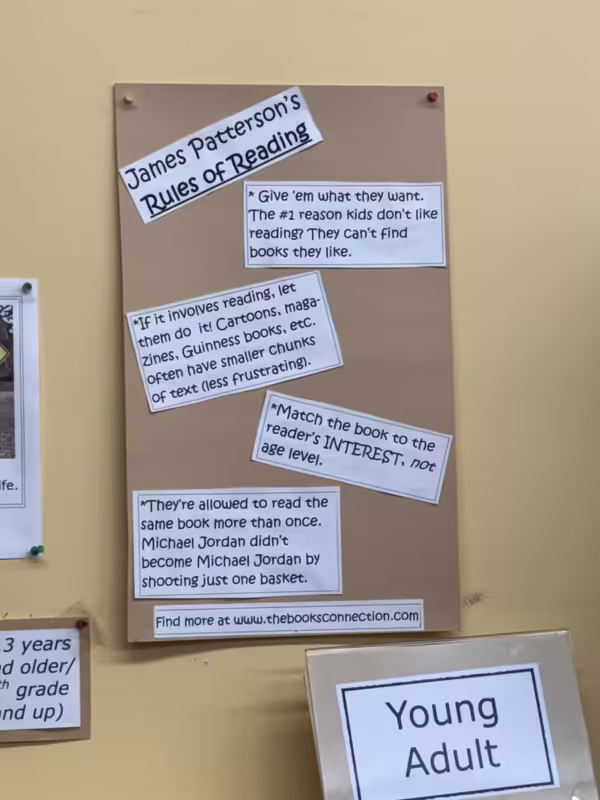 James Patterson's
Rules of Reading
* Give 'em what they want.
The #1 reason kids don't like
reading? They can't find
books they like.
*If it involves reading, let
them do it! Cartoons, maga-
zines, Guinness books, etc.
often have smaller chunks
of text (less frustrating).
*Match the book to the
reader's INTEREST, not
age level.
*They're allowed to read the
same book more than once.
Michael Jordan didn't
become Michael Jordan by
shooting just one basket.
Find more at www.thebooksconnection.com
ife.
3 years
d older/
th grade
nd up)
Young
Adult